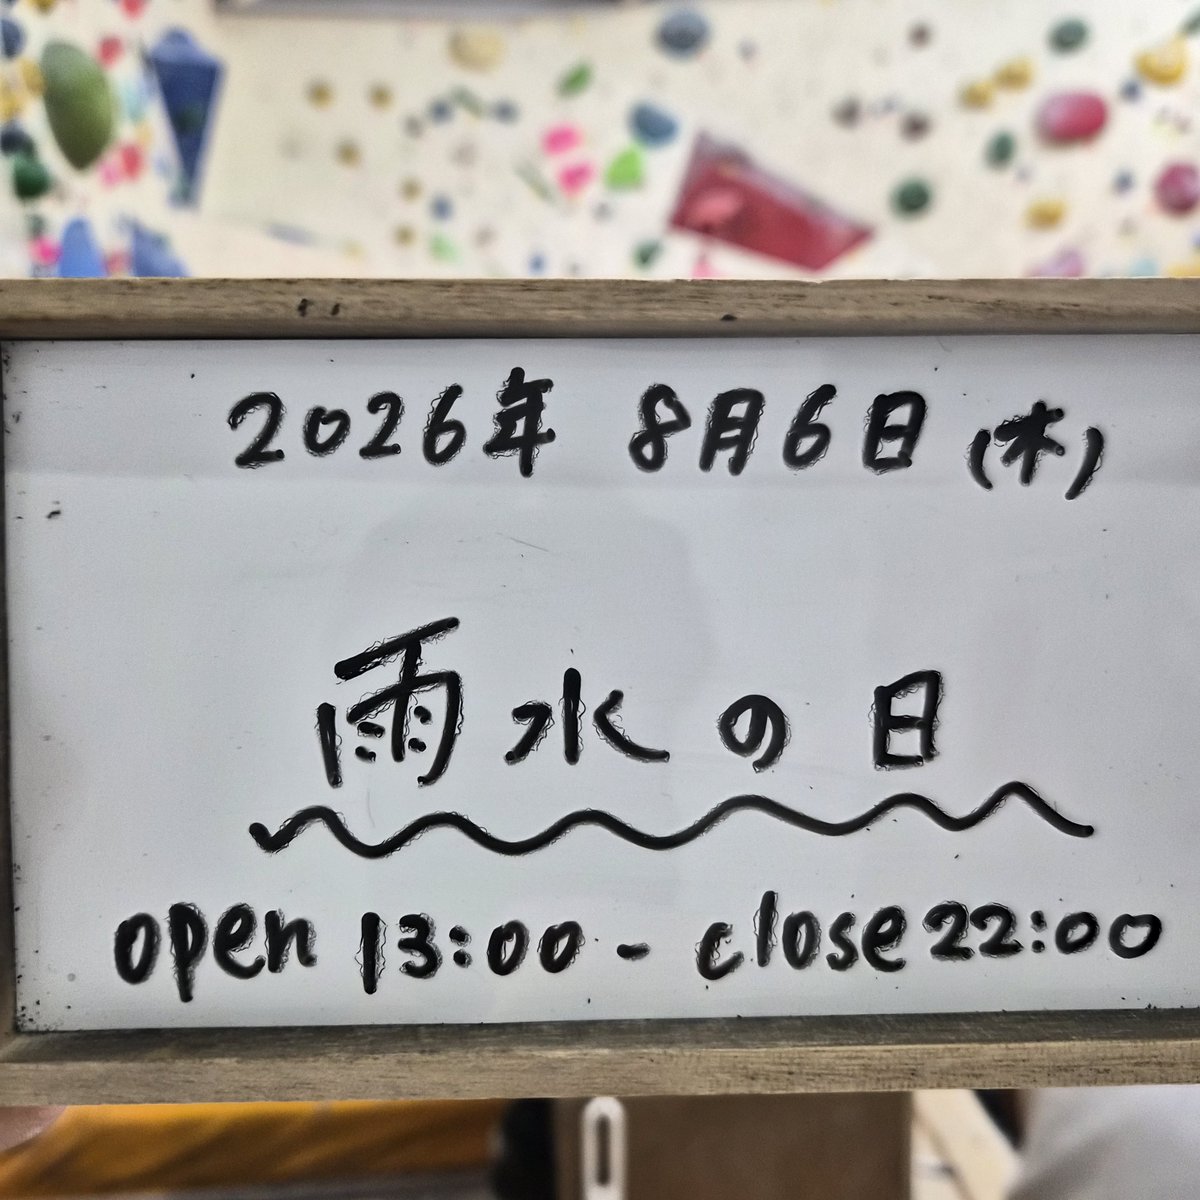 2026年 8月6日(木)
雨水の日
open 13:00 - close 22:00